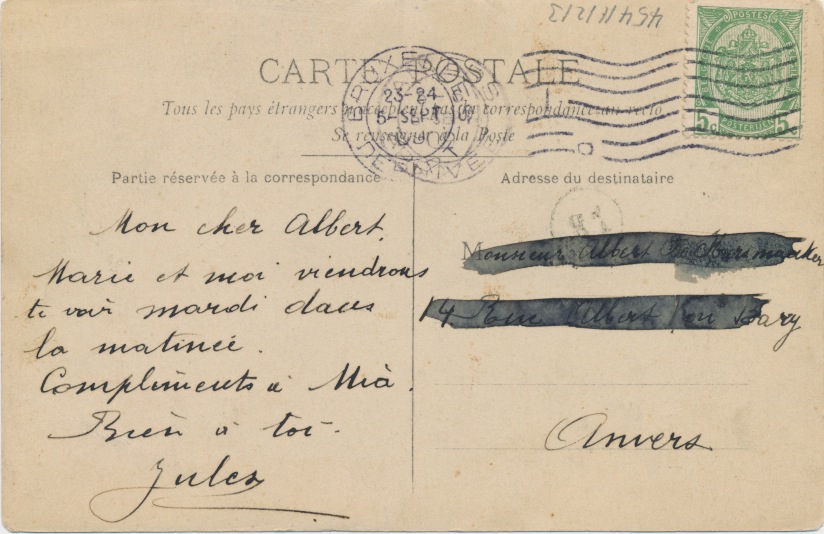 454 11 1213
CARTE POSTALE
Tous les pays étrangers n'acceptent pas la correspondance au recto
Se renseigner à la Poste
BRUXELLES
23-24
5-SEPT
DEPART
POSTES
5c 5c
Partie réservée à la correspondance
Mon cher Albert,
Marie et moi viendrons
te voir mardi dans
la matinée.
Compliments à Mià.
Bien à toi.
Jules
Adresse du destinataire
Monsieur Albert
14 Rue Albert
Anvers